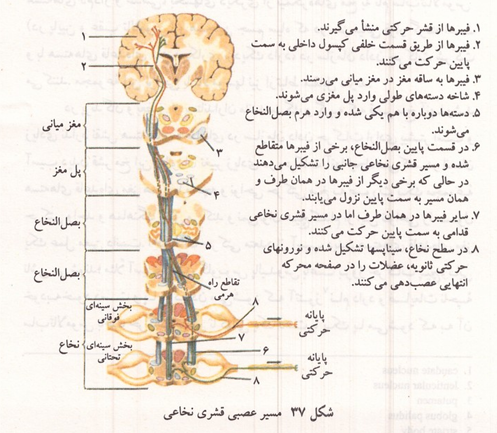 ۱. فیبرها از قشر حرکتی منشأ می‌گیرند.
۲. فیبرها از طریق قسمت خلفی کپسول داخلی به سمت
پایین حرکت می‌کنند.
۳. فیبرها به ساقه مغز در مغز میانی می‌رسند.
۴. شاخه دسته‌های طولی وارد پل مغزی می‌شوند.
۵. دسته‌ها دوباره با هم یکی شده و وارد هرم بصل‌النخاع
می‌شوند.
۶. در قسمت پایین بصل‌النخاع، برخی از فیبرها متقاطع
شده و مسیر قشری نخاعی جانبی را تشکیل می‌دهند
در حالی که برخی دیگر از فیبرها در همان طرف و
همان مسیر به سمت پایین نزول می‌یابند.
۷. سایر فیبرها در همان طرف اما در مسیر قشری نخاعی
قدامی به سمت پایین حرکت می‌کنند.
۸. در سطح نخاع، سیناپسها تشکیل شده و نورونهای
حرکتی ثانویه، عضلات را در صفحه محرکه
انتهایی عصب‌دهی می‌کنند.
۱
۲
مغز میانی
۳
پل مغز
۴
بصل‌النخاع
۵
بصل‌النخاع
تقاطع راه
هرمی
نخاع
بخش سینه‌ای
فوقانی
۸
پایانه
حرکتی
۷
بخش سینه‌ای
تحتانی
۶
پایانه
حرکتی
۸
شکل ۳۷ مسیر عصبی قشری نخاعی